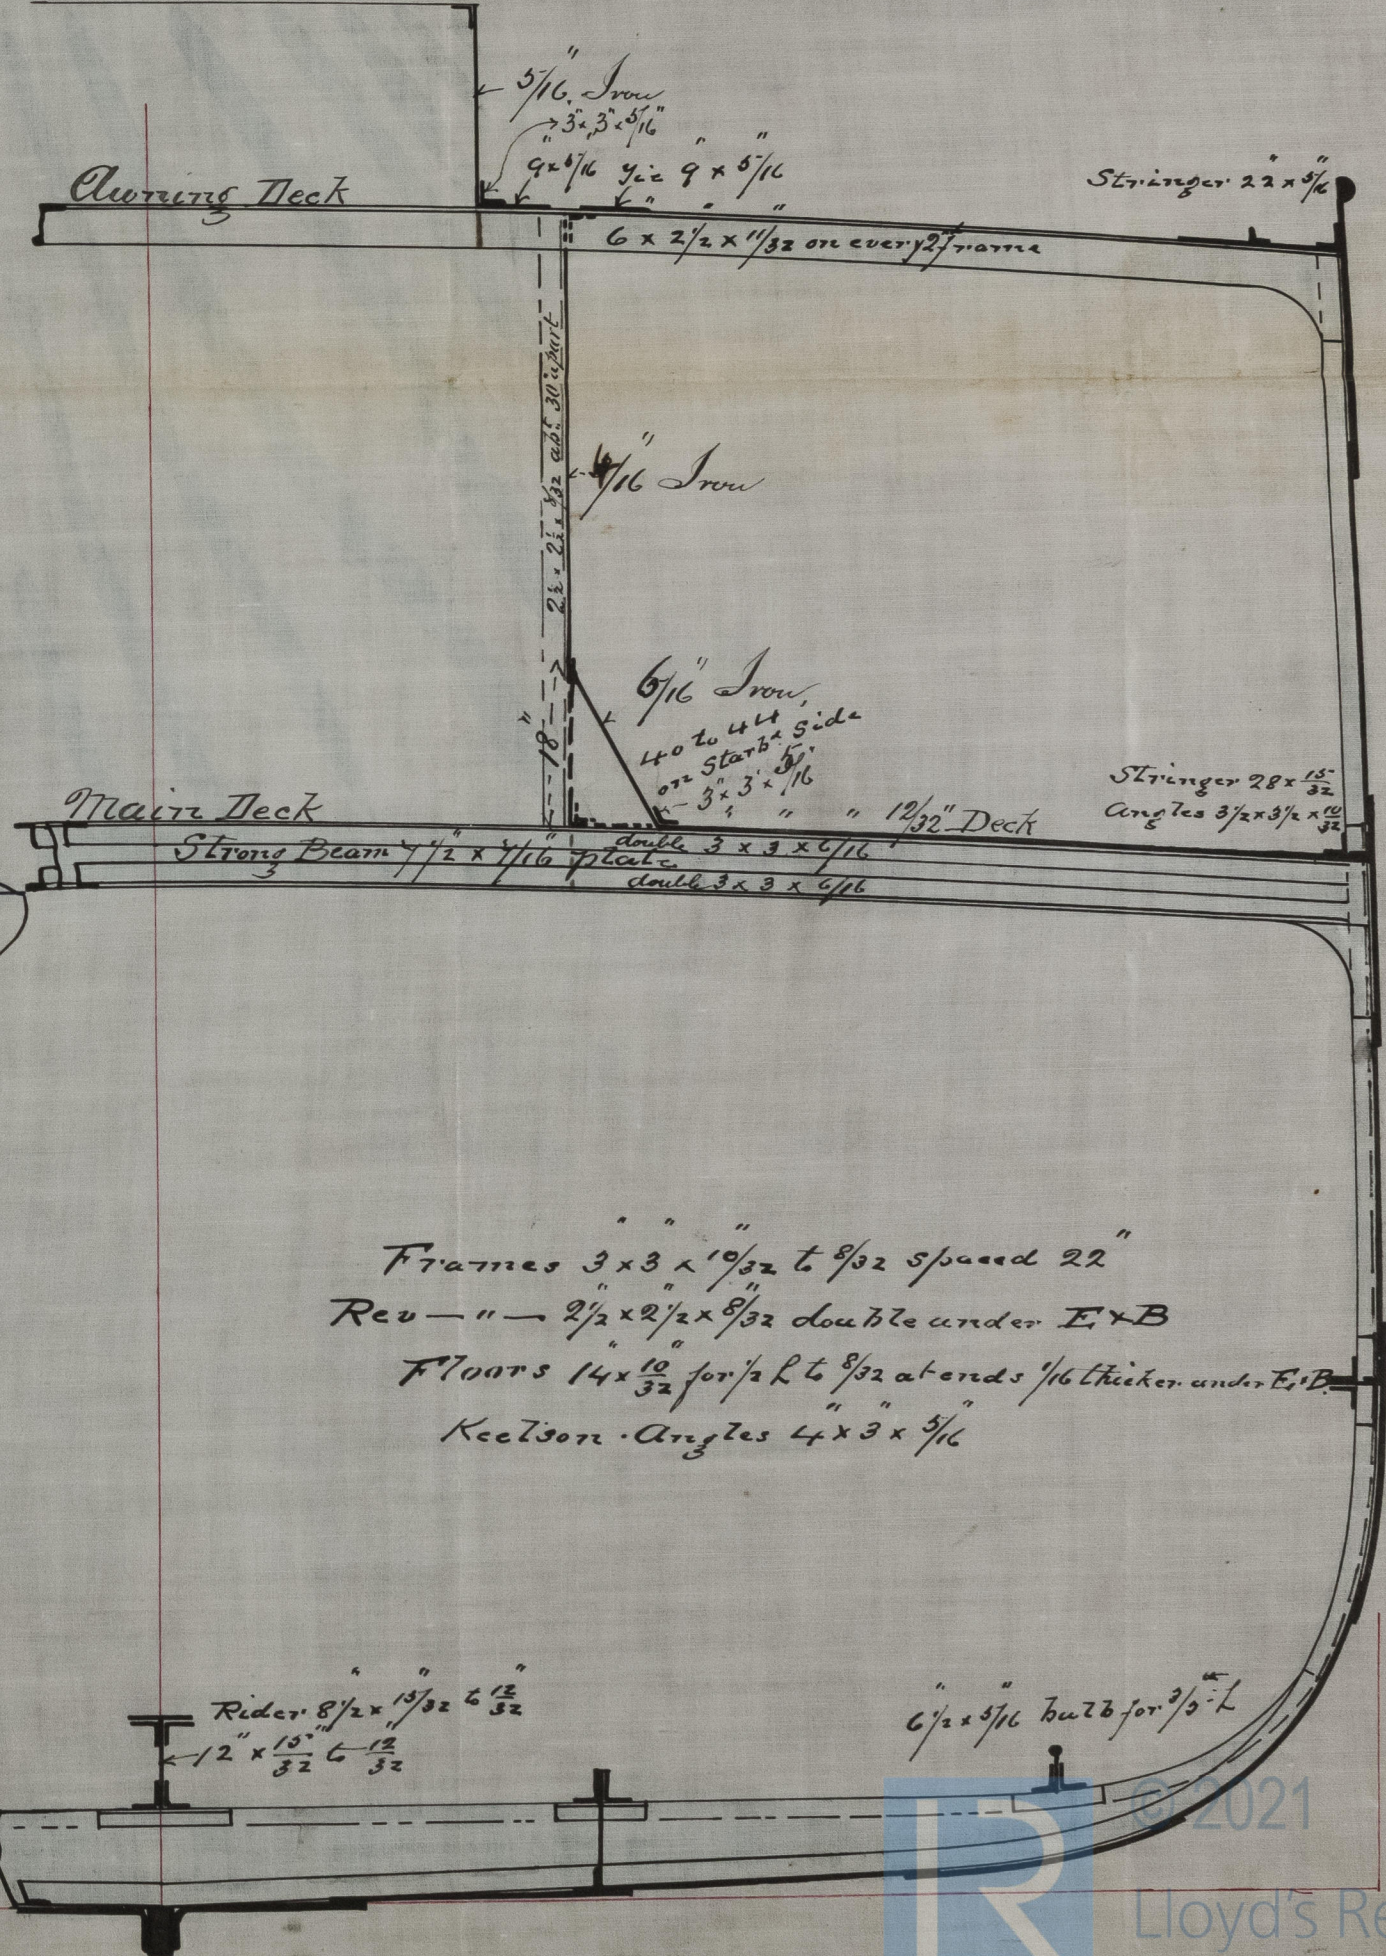 5/16" Iron
3" x 3" x 5/16"
9" x 5/16 9" x 5/16"
Awning Deck
Stringer 22" x 5/16"
6" x 2 1/2" x 11/32" on every 2nd frame
2 1/2 x 2 1/2 x 8/32 abt 30" apart
/16" Iron
/16" Iron,
40 to 44
on Starbd Side
3" x 3" x 5/16"
18"
Main Deck
Stringer 28 x 15/32
Angles 3 1/2 x 3 1/2 x 10/32
12/32" Deck
Strong Beam 7 1/2" x 7/16" plate
double 3" x 3" x 6/16"
double 3 x 3 x 6/16
Frames 3" x 3" x 10/32" to 8/32 spaced 22"
Rev — " — 2 1/2" x 2 1/2" x 8/32" double under E & B
Floors 14" x 10/32" for 1/2 L to 8/32 at ends 1/16 thicker under E & B
Keelson Angles 4" x 3" x 5/16"
Rider 8 1/2" x 15/32" to 12/32"
12" x 15/32" to 12/32"
6 1/2" x 5/16" bulb for 3/5ths L
© 2021
Lloyd's Re